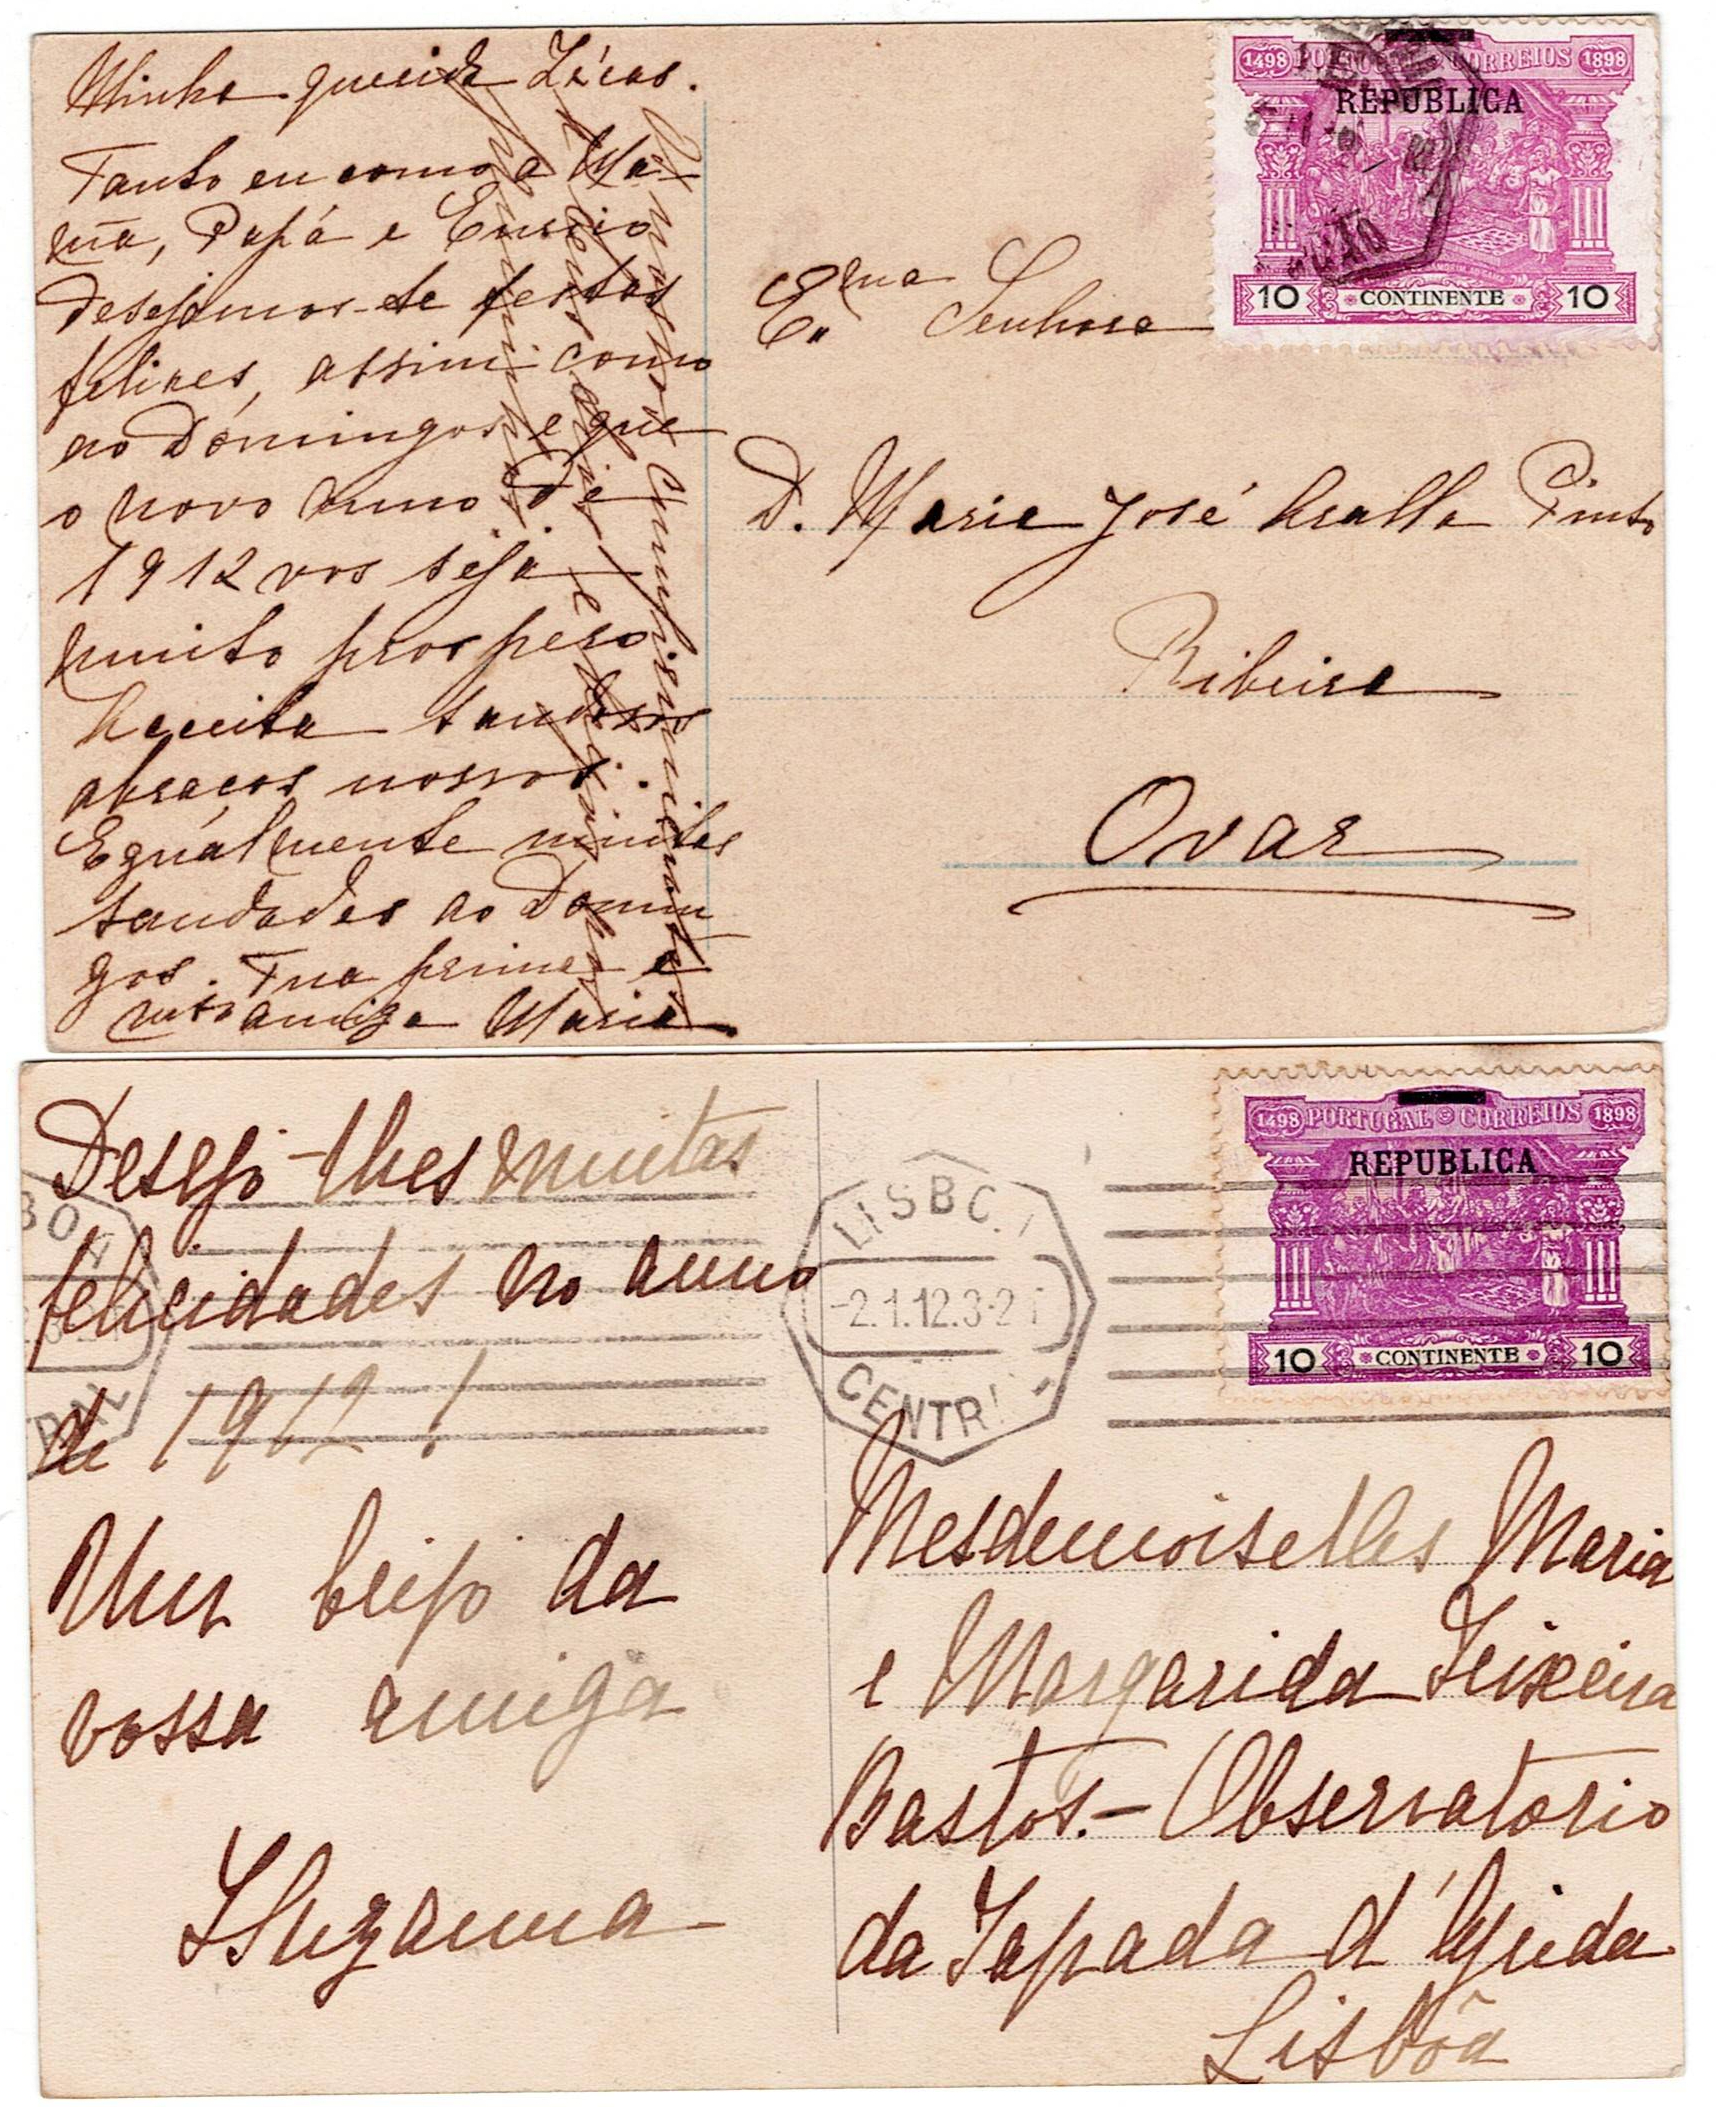 Minha querida Zécas.
Tanto eu como a Ma-
mã, Papá e
desejamos-te festas
felizes, assim como
ao Domingos e que
o novo anno de
1912 vos seja
muito prospero
Acceita saudosos
abraços nossos.
Egualmente muitas
saudades ao Domin
gos. Tua prima e
mto amiga Maria
Exma Senhora
D. Maria José Aralla Pinto
Ribeira
Ovar
1498 PORTUGAL CORREIOS 1898
REPUBLICA
10 CONTINENTE 10
Desejo-lhes muitas
felicidades no anno
de 1912!
Um beijo da
vossa amiga
1498 PORTUGAL CORREIOS 1898
REPUBLICA
10 CONTINENTE 10
LISBOA
-2.1.12.3-2
CENTRAL
Mesdemoiselles Maria
e Margarida Teixeira
Bastos.- Observatorio
da Tapada d'Ajuda
Lisbôa